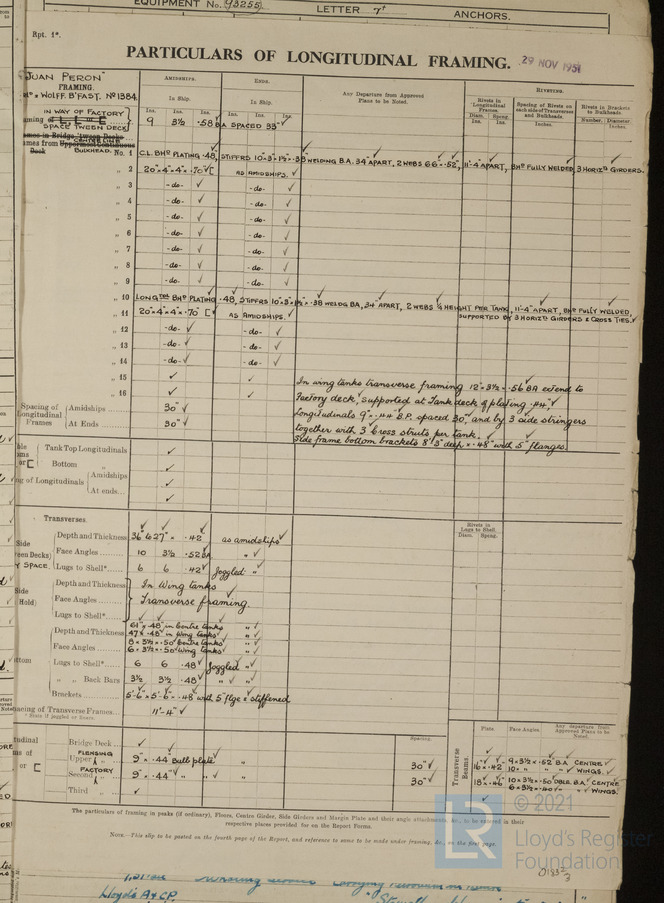 EQUIPMENT No. 93255
LETTER 7†
ANCHORS.
Rpt. 1*.
PARTICULARS OF LONGITUDINAL FRAMING.
29 NOV 1951
"JUAN PERON"
FRAMING.
WOLFF. B'FAST. No 1384.
AMIDSHIPS.
ENDS.
Any Departure from Approved Plans to be Noted.
RIVETING.
In Ship.
In Ship.
Rivets in Longitudinal Frames.
Spacing of Rivets on each side of Transverses and Bulkheads.
Rivets in Brackets to Bulkheads.
Ins. Ins. Ins. Ins. Ins. Ins.
Diam. Ins. Spcng. Ins.
Inches.
Number. Diameter Inches.
IN WAY OF FACTORY
SPACE TWEEN DECK
9 3½ .58 BA SPACED 33"
CENTRE LINE
BULKHEAD. No. 1 C.L. BHD PLATING .48, STIFFRS 10"×3"×½"×.38 WELDING BA. 34 APART, 2 WEBS 66"×.52", 11'-4" APART, BHD FULLY WELDED, 3 HORIZL GIRDERS.
" 2 20"×4"×4"×.70" [ AS AMIDSHIPS.
" 3 -do- -do-
" 4 -do- -do-
" 5 -do- -do-
" 6 -do- -do-
" 7 -do- -do-
" 8 -do- -do-
" 9 -do- -do-
" 10 LONGDNL BHD PLATING .48, STIFFRS 10"×3"×½"×.38 WELDG BA, 34" APART, 2 WEBS ½ HEIGHT PER TANK, 11'-4" APART, BHD FULLY WELDED,
" 11 20"×4"×4"×.70" [ AS AMIDSHIPS. SUPPORTED BY 3 HORIZL GIRDERS & CROSS TIES.
" 12 -do- -do-
" 13 -do- -do-
" 14 -do- -do-
" 15
" 16
In wing tanks transverse framing 12"×3½"×.56 BA extend to
Factory deck, supported at Tank deck by plating .44"
Longitudinals 9"×.44 B.P. spaced 30", and by 3 side stringers
together with 3 Cross struts per tank.
Side frame bottom brackets 8'3" deep ×.48" with 5" flanges.
Spacing of Longitudinal Frames
Amidships 30"
At Ends 30"
Tank Top Longitudinals
Bottom "
of Longitudinals
Amidships
At ends...
Transverses.
Rivets in Lugs to Shell.
Diam. Spcng.
Depth and Thickness 36"&27" × .42 as amidships
Face Angles 10 3½ .52 BA "
Lugs to Shell* 6 6 .42 Joggled "
Depth and Thickness
Face Angles
Lugs to Shell*
In Wing tanks
Transverse framing.
Depth and Thickness 61"×.48" in Centre tanks "
47×.48" in Wing tanks "
Face Angles 8×3½×.50" Centre tanks "
6×3½×.50" Wing tanks "
Lugs to Shell* 6 6 .48 Joggled "
" " Back Bars 3½ 3½ .48 " "
Brackets 5'-6"×5'-6"×.48" with 5" flge & stiffened
Spacing of Transverse Frames 11'-4"
* State if joggled or liners.
Spacing.
Bridge Deck
FLENSING
Upper " 9"×.44 Bulb plate " 30"
FACTORY
Second " 9"×.44" " " 30"
Third "
Transverse Beams.
Plate
Face Angles.
Any departure from Approved Plans to be Noted.
16"×.42" 9×3½×.52 B.A. CENTRE
10× " " WINGS.
18×.46 10×3½×.50 DBLE BA. CENTRE
6×3½×.50" " WINGS.
The particulars of framing in peaks (if ordinary), Floors, Centre Girder, Side Girders and Margin Plate and their angle attachments, &c., to be entered in their
respective places provided for on the Report Forms.
NOTE.—This slip to be pasted on the fourth page of the Report, and reference to same to be made under framing, &c., on the first page.
LR
© 2021
Lloyd's Register
Foundation
Lloyds A & CP.